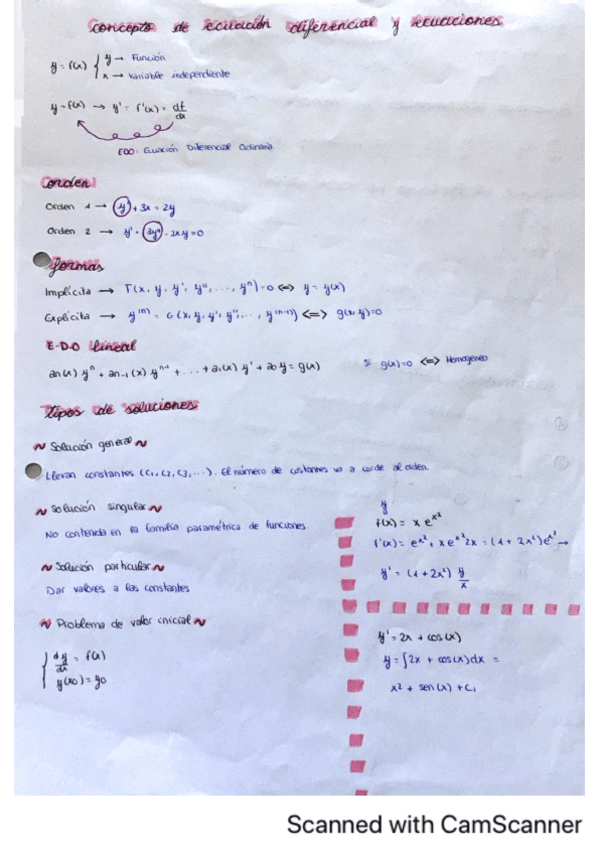 Concepto de ecuación diferencial y ecuaciones
y = f(x) { y → Función
x → Variable independiente
y = f(x) → y' = f'(x) = df/dx
EDO: Ecuación Diferencial Ordinaria.
Orden:
Orden 1 → y' + 3x = 2y
Orden 2 → y' · 3y'' - 2xy = 0
formas
Implícita → F(x, y, y', y'', ..., yⁿ) = 0 <=> y = y(x)
Explícita → y⁽ⁿ⁾ = G(x, y, y', y'', ..., y⁽ⁿ⁻¹⁾) <=> g(x, y) = 0
E-D-O lineal
an(x) yⁿ + an-1(x) yⁿ⁻¹ + ... + a1(x) y' + a0 y = g(x) Si g(x) = 0 <=> Homogeneo
tipos de soluciones
~ Solución general ~
Llevan constantes (C1, C2, C3, ...). El número de constantes va a coincide al orden.
~ Solución singular ~
No contenida en la familia paramétrica de funciones.
~ Solución particular ~
Dar valores a las constantes
~ Problema de valor inicial ~
{ dy/dx = f(x)
y(x0) = y0
y
f(x) = x e^x²
f'(x) = e^x² + x e^x² 2x = (1 + 2x²) e^x² →
y' = (1 + 2x²) y/x
y' = 2x + cos(x)
y = ∫2x + cos(x) dx =
x² + sen(x) + C1
Scanned with CamScanner